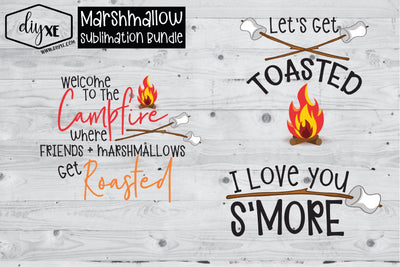 diyXE
Marshmallow
Sublimation Bundle
Welcome
to the
Campfire
where
friends + marshmallows
get Roasted
Let's Get
TOASTED
I Love you
S'MORE